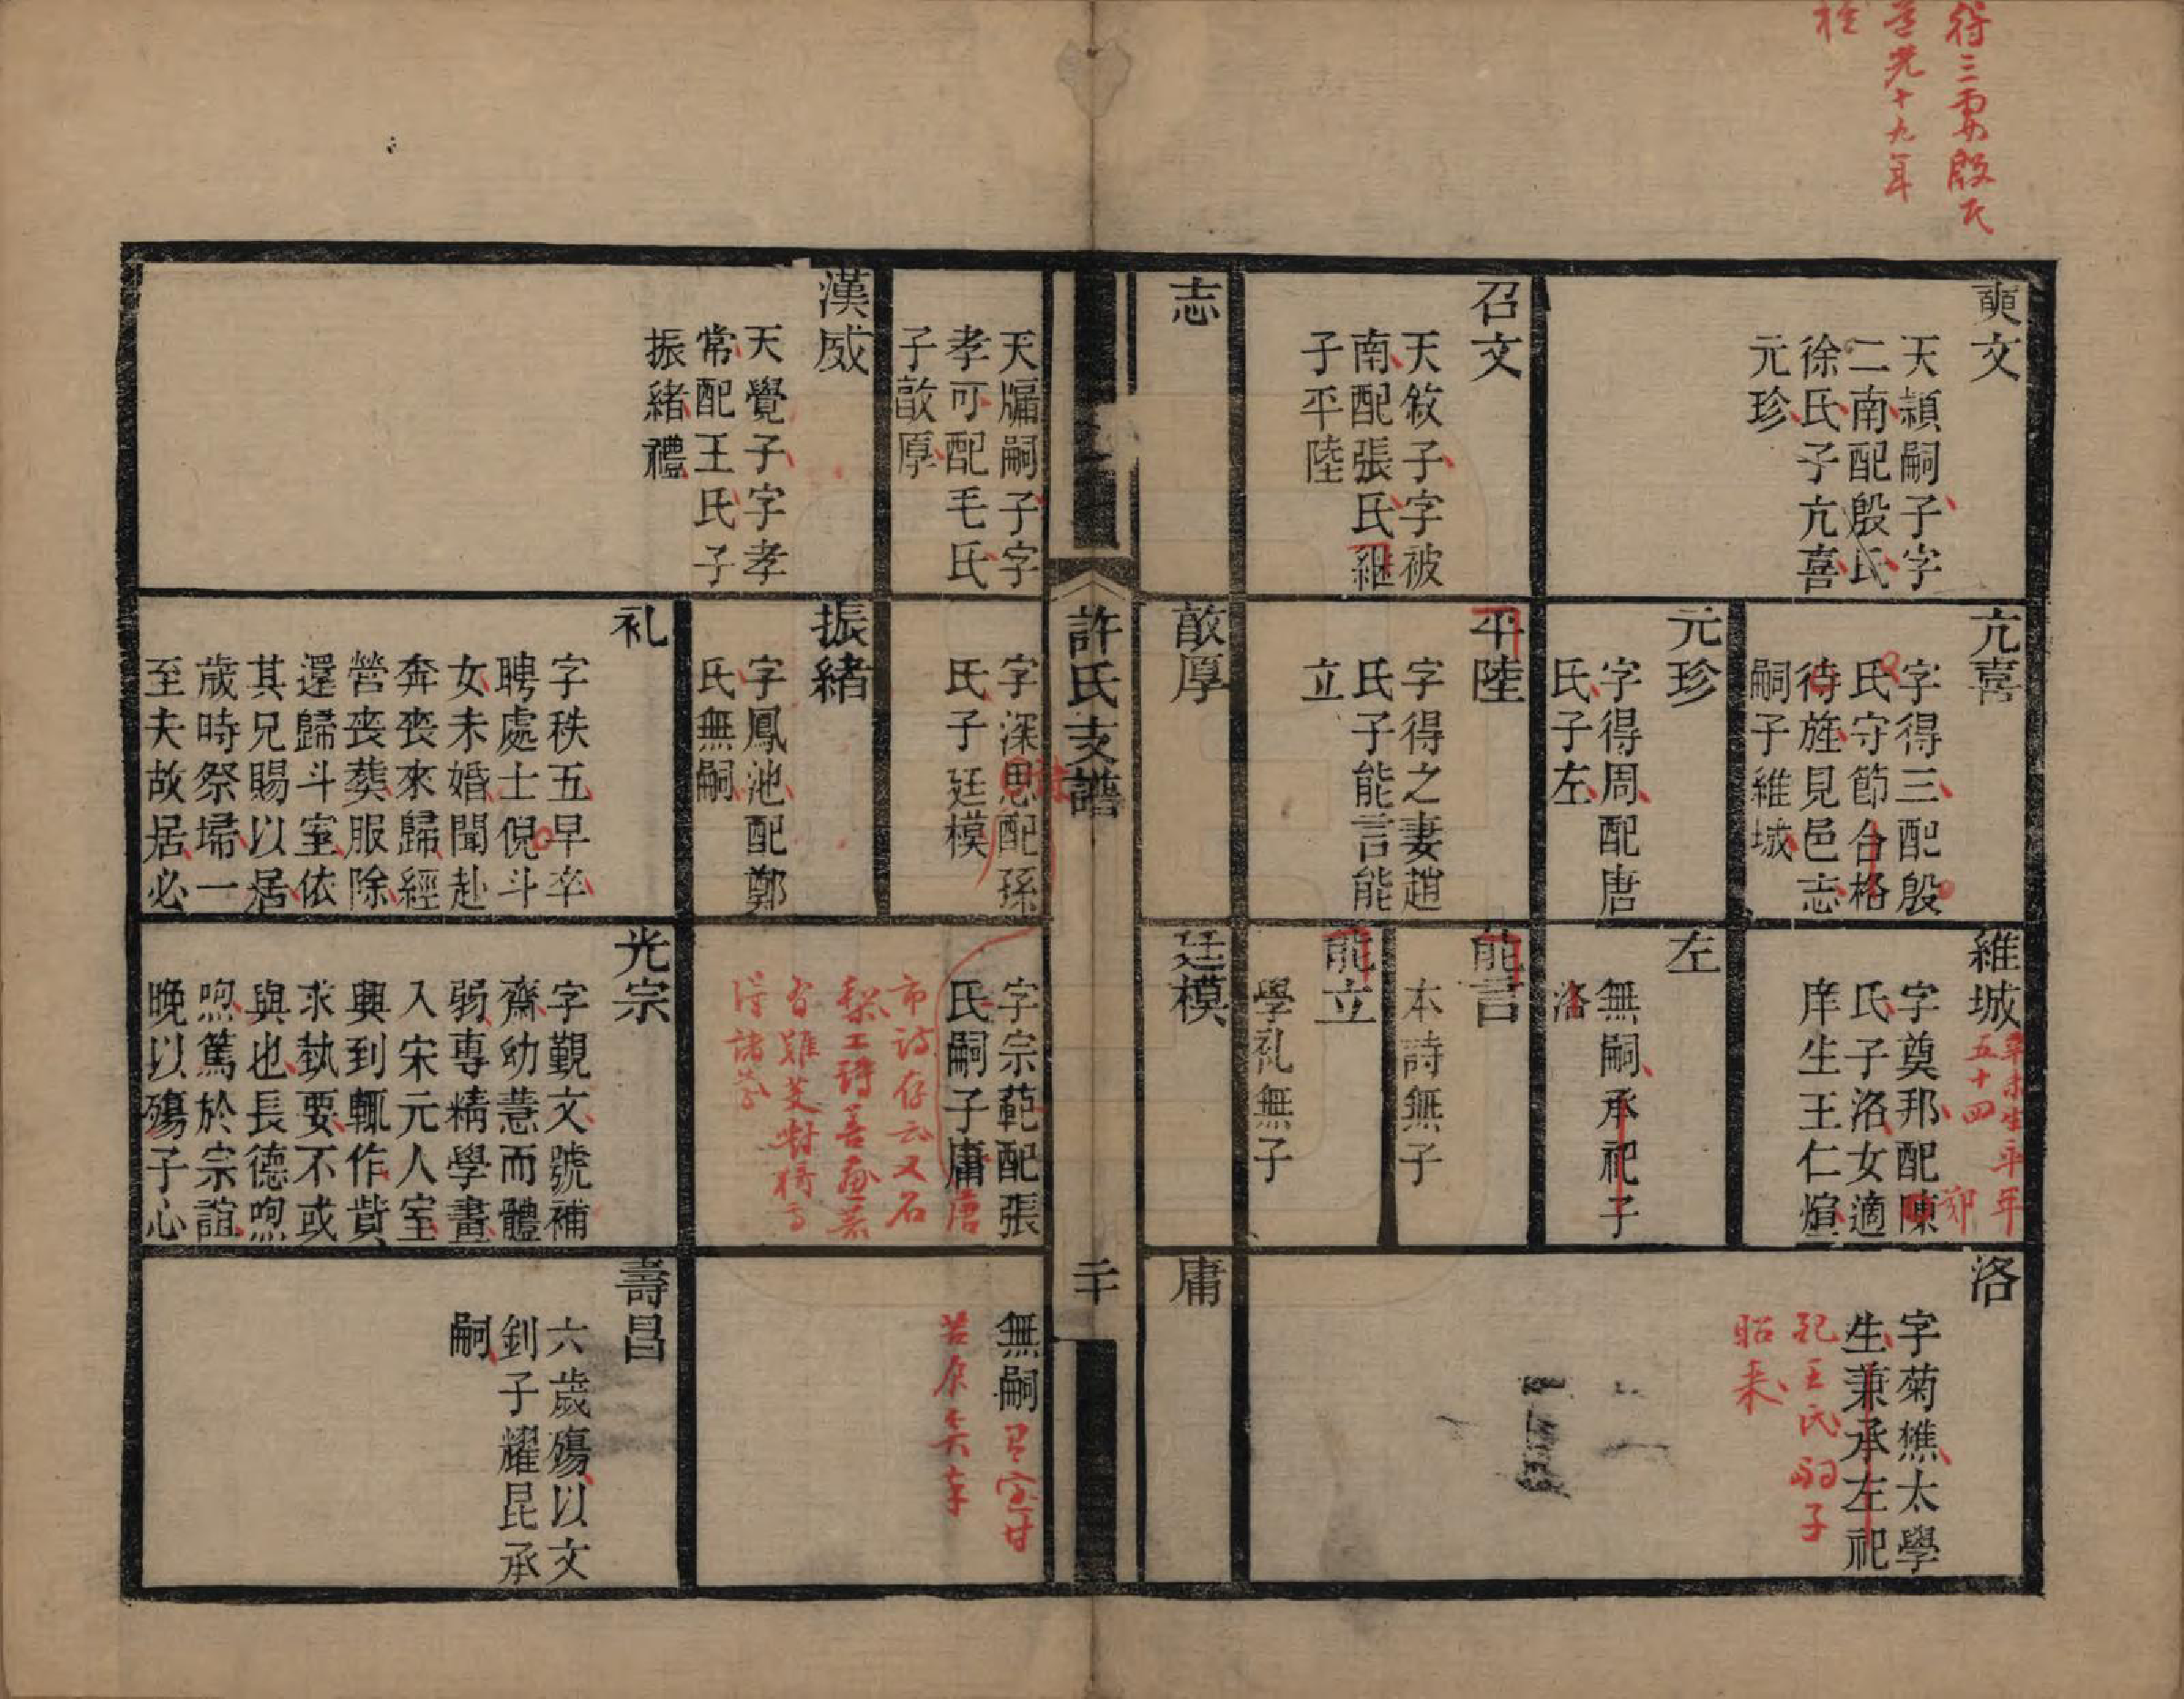 得三妻殷氏
道光十九年
旌
奭文
天頴嗣子字
二南配殷氏
徐氏子亢喜
元珍
召文
天敘子字被
南配張氏繼
子平陸
志
天牖嗣子字
孝可配毛氏
子敨厚
漢威
天覺子字孝
常配王氏子
振緒禮
亢喜
字得三配殷
氏守節合格
待旌見邑志
嗣子維城
元珍
字得周配唐
氏子左
平陸
字得之妻趙
氏子能言能
立
敨厚
許氏支譜
字深思配孫
氏子廷模
振緒
字鳳池配鄭
氏無嗣
礼
字秩五早卒
聘處士倪斗
女未婚聞赴
奔喪來歸經
營喪葬服除
還歸斗室依
其兄賜以居
歲時祭埽一
至夫故居必
維城
辛未生卒年
五十四
字奠邦配陳
鄭
氏子洛女適
庠生王仁煊
左
無嗣承祀子
洛
能言
本詩無子
能立
學礼無子
廷模
字宗範配張
氏嗣子庸
唐
市詩存云又石
工詩善画
得諸
光宗
字覲文號補
齋幼慧而體
弱專精學畫
入宋元人室
興到輒作貲
求執要不或
與也長德喣
喣篤於宗誼
晚以殤子心
洛
字菊樵太學
生兼承左祀
配王氏嗣子
昭来
庸
二十
無嗣
壽昌
六歲殤以文
釗子耀昆承
嗣